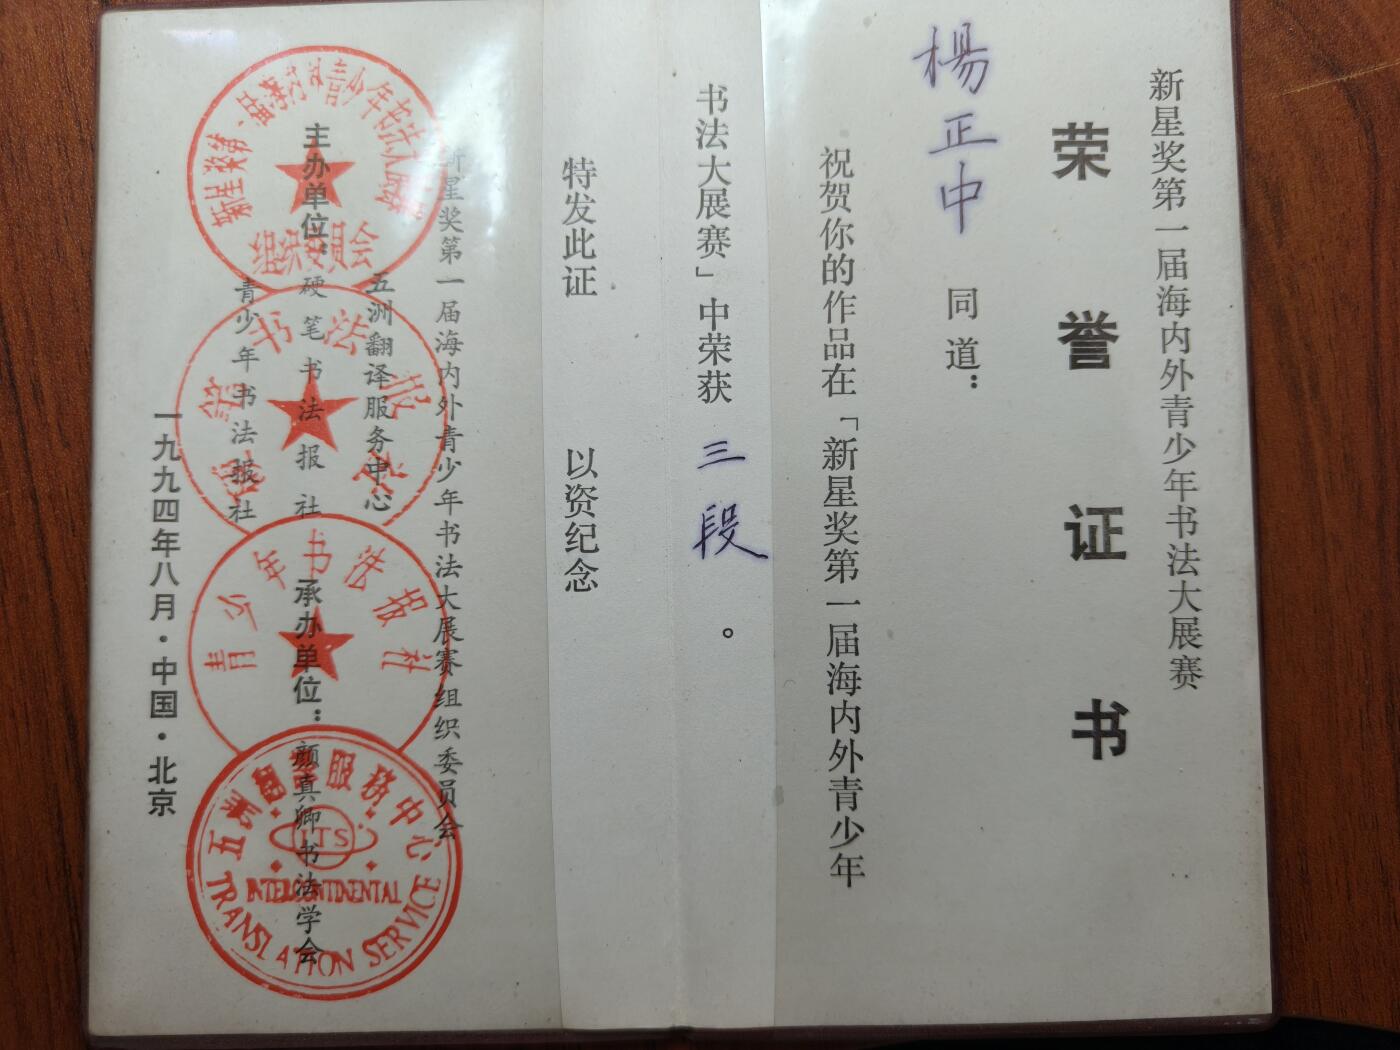 新星奖第一届海内外青少年书法大展赛
荣誉证书
楊正中 同道：
祝贺你的作品在「新星奖第一届海内外青少年
书法大展赛」中荣获 三段 。
特发此证 以资纪念
新星奖第一届海内外青少年书法大展赛组织委员会
五洲翻译服务中心
主办单位：硬笔书法报社 承办单位：颜真卿书法学会
青少年书法报社
一九九四年八月·中国·北京
新星奖第一届海内外青少年书法大展赛
组织委员会
硬笔书法报社
青少年书法报社
五洲翻譯服務中心
ITS
INTERCONTINENTAL
TRANSLATION SERVICE